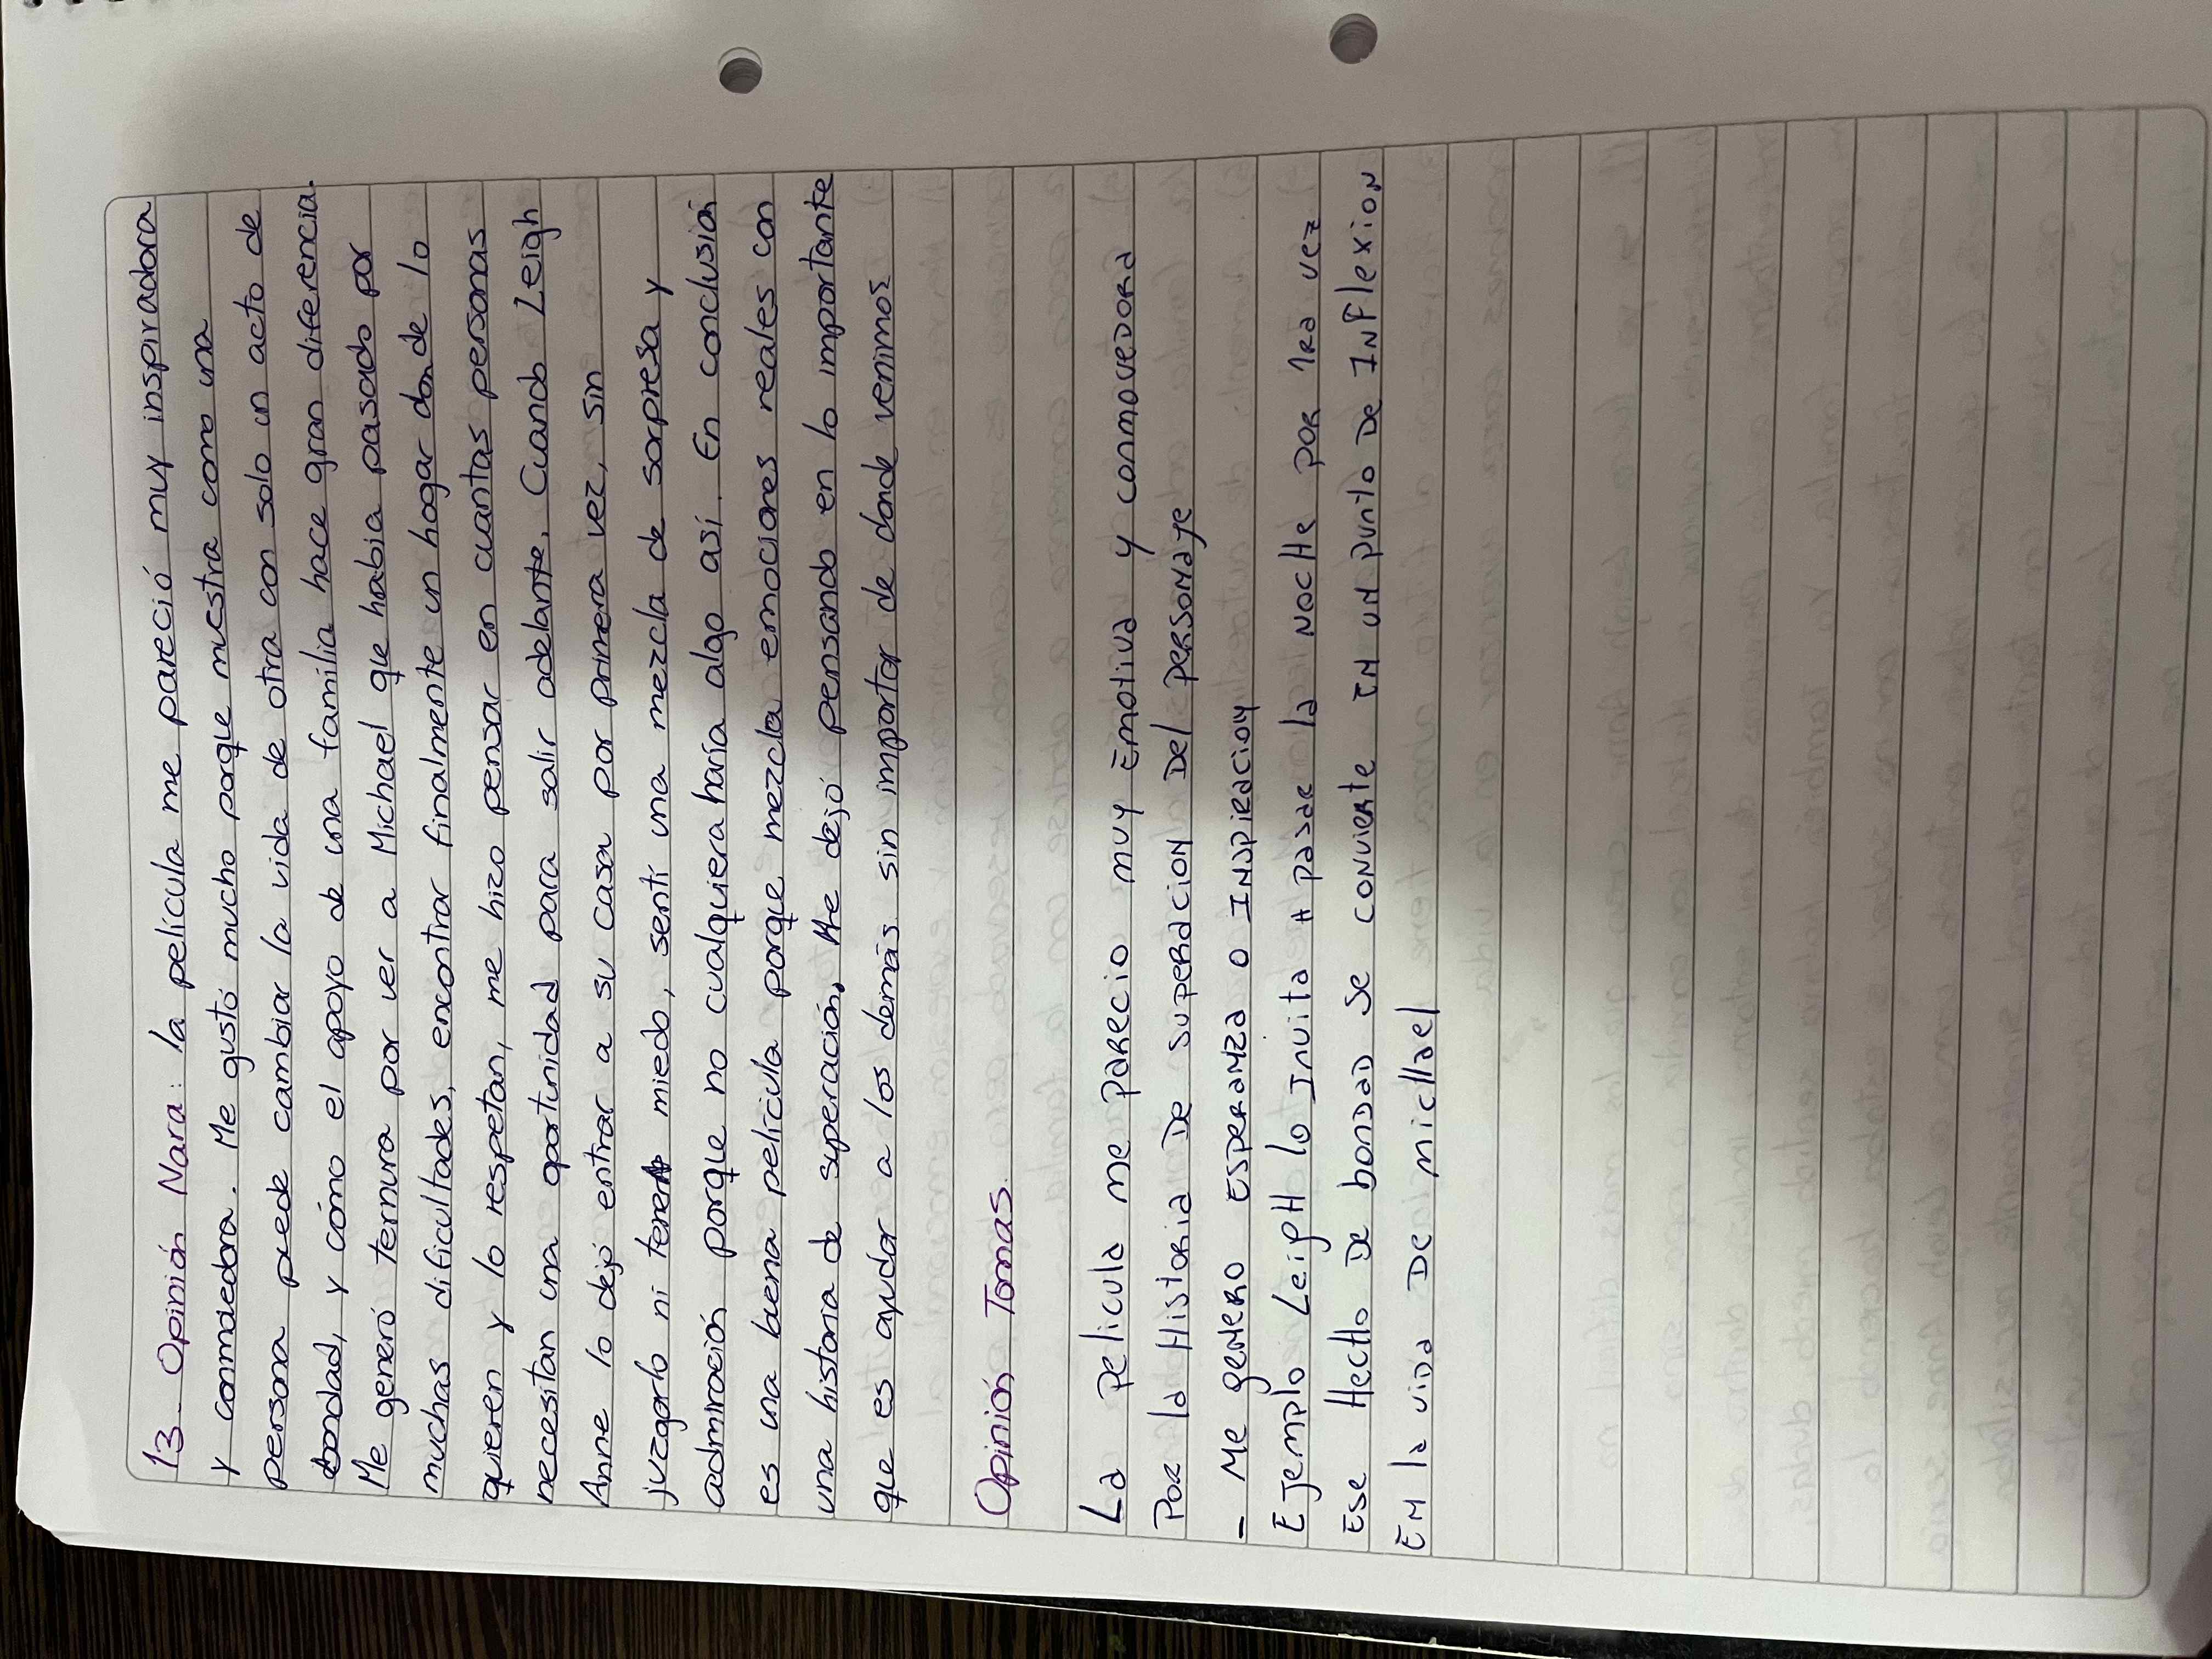 13_ Opinión Nara: la película me pareció muy inspiradora
y conmovedora. Me gustó mucho porque muestra como una
persona puede cambiar la vida de otra con solo un acto de
bondad, y cómo el apoyo de una familia hace gran diferencia.
Me generó ternura por ver a Michael que habia pasado por
muchas dificultades, encontrar finalmente un hogar donde lo
quieren y lo respetan, me hizo pensar en cuantas personas
necesitan una oportunidad para salir adelante. Cuando Leigh
Anne lo dejó entrar a su casa por primera vez, sin
juzgarlo ni tener miedo, sentí una mezcla de sorpresa y
admiración porque no cualquiera haría algo así. En conclusión
es una buena película porque mezcla emociones reales con
una historia de superación. Me dejó pensando en lo importante
que es ayudar a los demás sin importar de donde venimos
Opinión Tomas
La pelicula me parecio muy Emotiva y conmovedora
Por la Historia De superacion Del personaje
- Me genero esperanza o Inspiracion
Ejemplo Leigh lo Invita a pasar la noche por 1ra vez
Ese Hecho De bondad se convierte en un punto De Inflexion
En la vida De michael